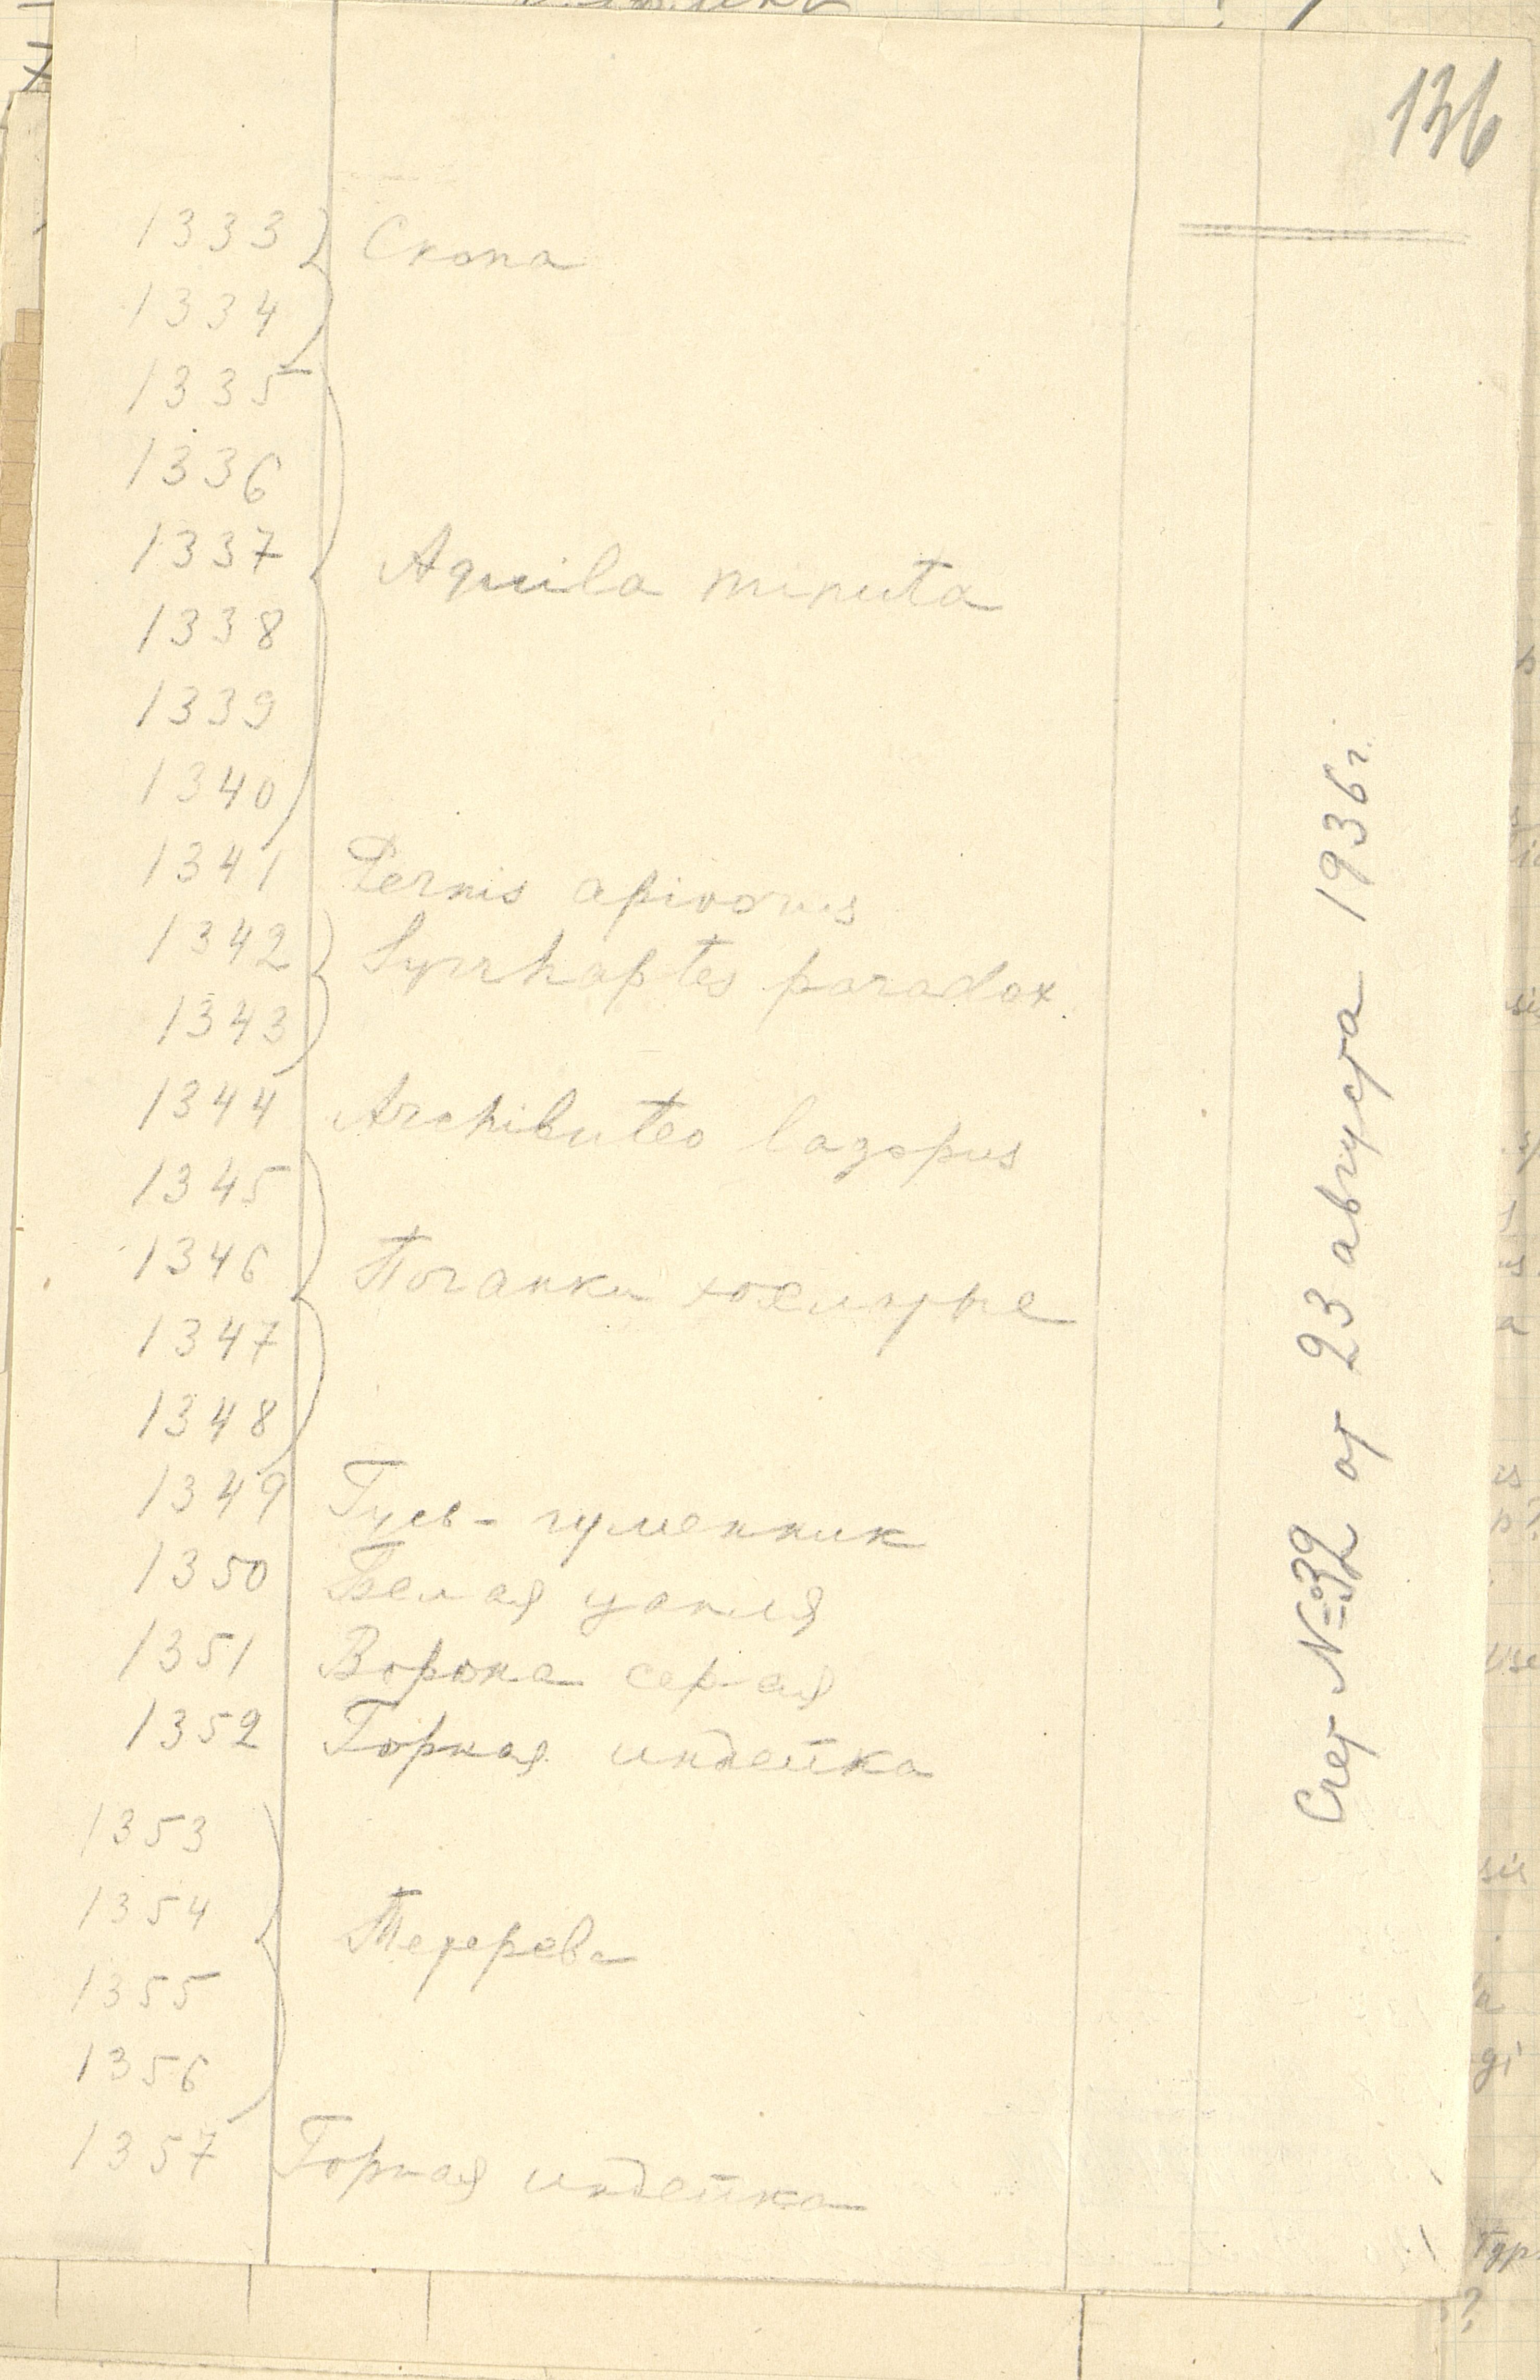 136
1333 Скопа
1334
1335
1336
1337 Aquila minuta
1338
1339
1340
1341 Pernis apivorus
1342 Syrrhaptes paradox.
1343
1344 Archibuteo lagopus
1345
1346 Поганки хохлатые
1347
1348
1349 Гусь-гуменник
1350 Белая цапля
1351 Ворона серая
1352 Горная индейка
1353
1354 Тетерева
1355
1356
1357 Горная индейка
Счет №32 от 23 августа 1936г.